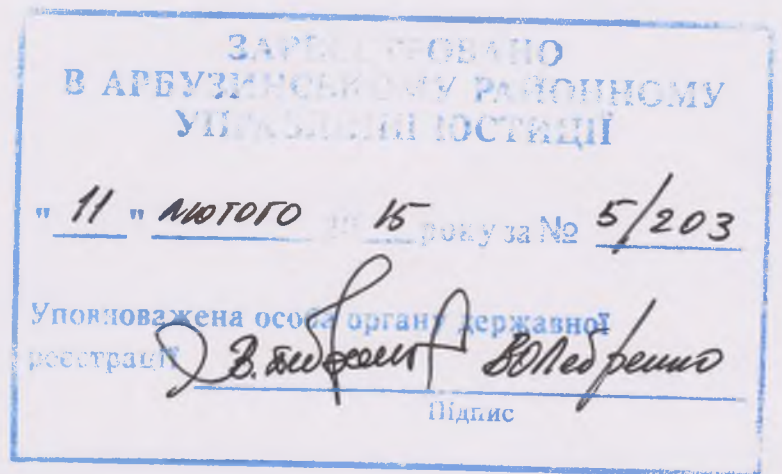 ЗАРЕЄСТРОВАНО
В АРБУЗИНСЬКОМУ РАЙОННОМУ
УПРАВЛІННІ ЮСТИЦІЇ
"11" лютого 20 15 року за № 5/203
Уповноважена особа органу державної
реєстрації
Підпис